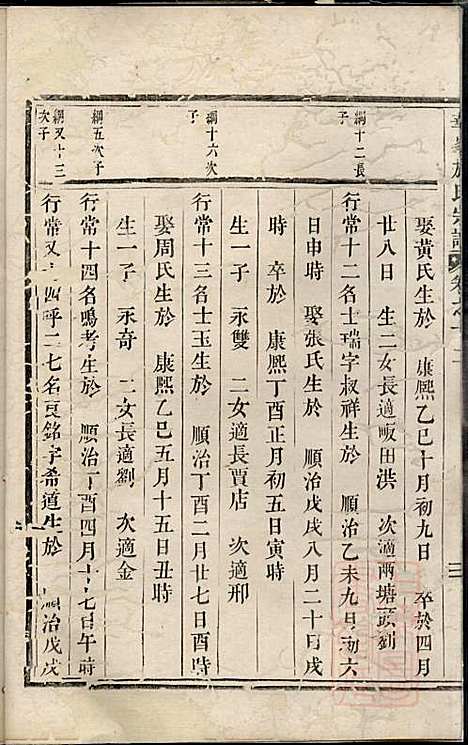 氏宗譜 卷之十二
三
娶黃氏生於 康熙乙巳十月初九日 卒於四月
廿八日 生二女長適畈田洪 次適兩塘頭劉
綱十二長子
行常十二名士瑞字叔祥生於 順治乙未九月初六
日申時 娶張氏生於 順治戊戌八月二十日戌
時 卒於 康熙丁酉正月初五日寅時
生一子 永雙 二女適長賈店 次適邢
綱十六次子
行常十三名士玉生於 順治丁酉二月廿七日酉時
娶周氏生於 康熙乙巳五月十五日丑時
生一子 永奇 二女長適劉 次適金
綱五次子
行常十四名鳴考生於 順治丁酉四月十七日午時
綱又十三次子
行常又 四呼二七名良銘字希道生於 順治戊戌